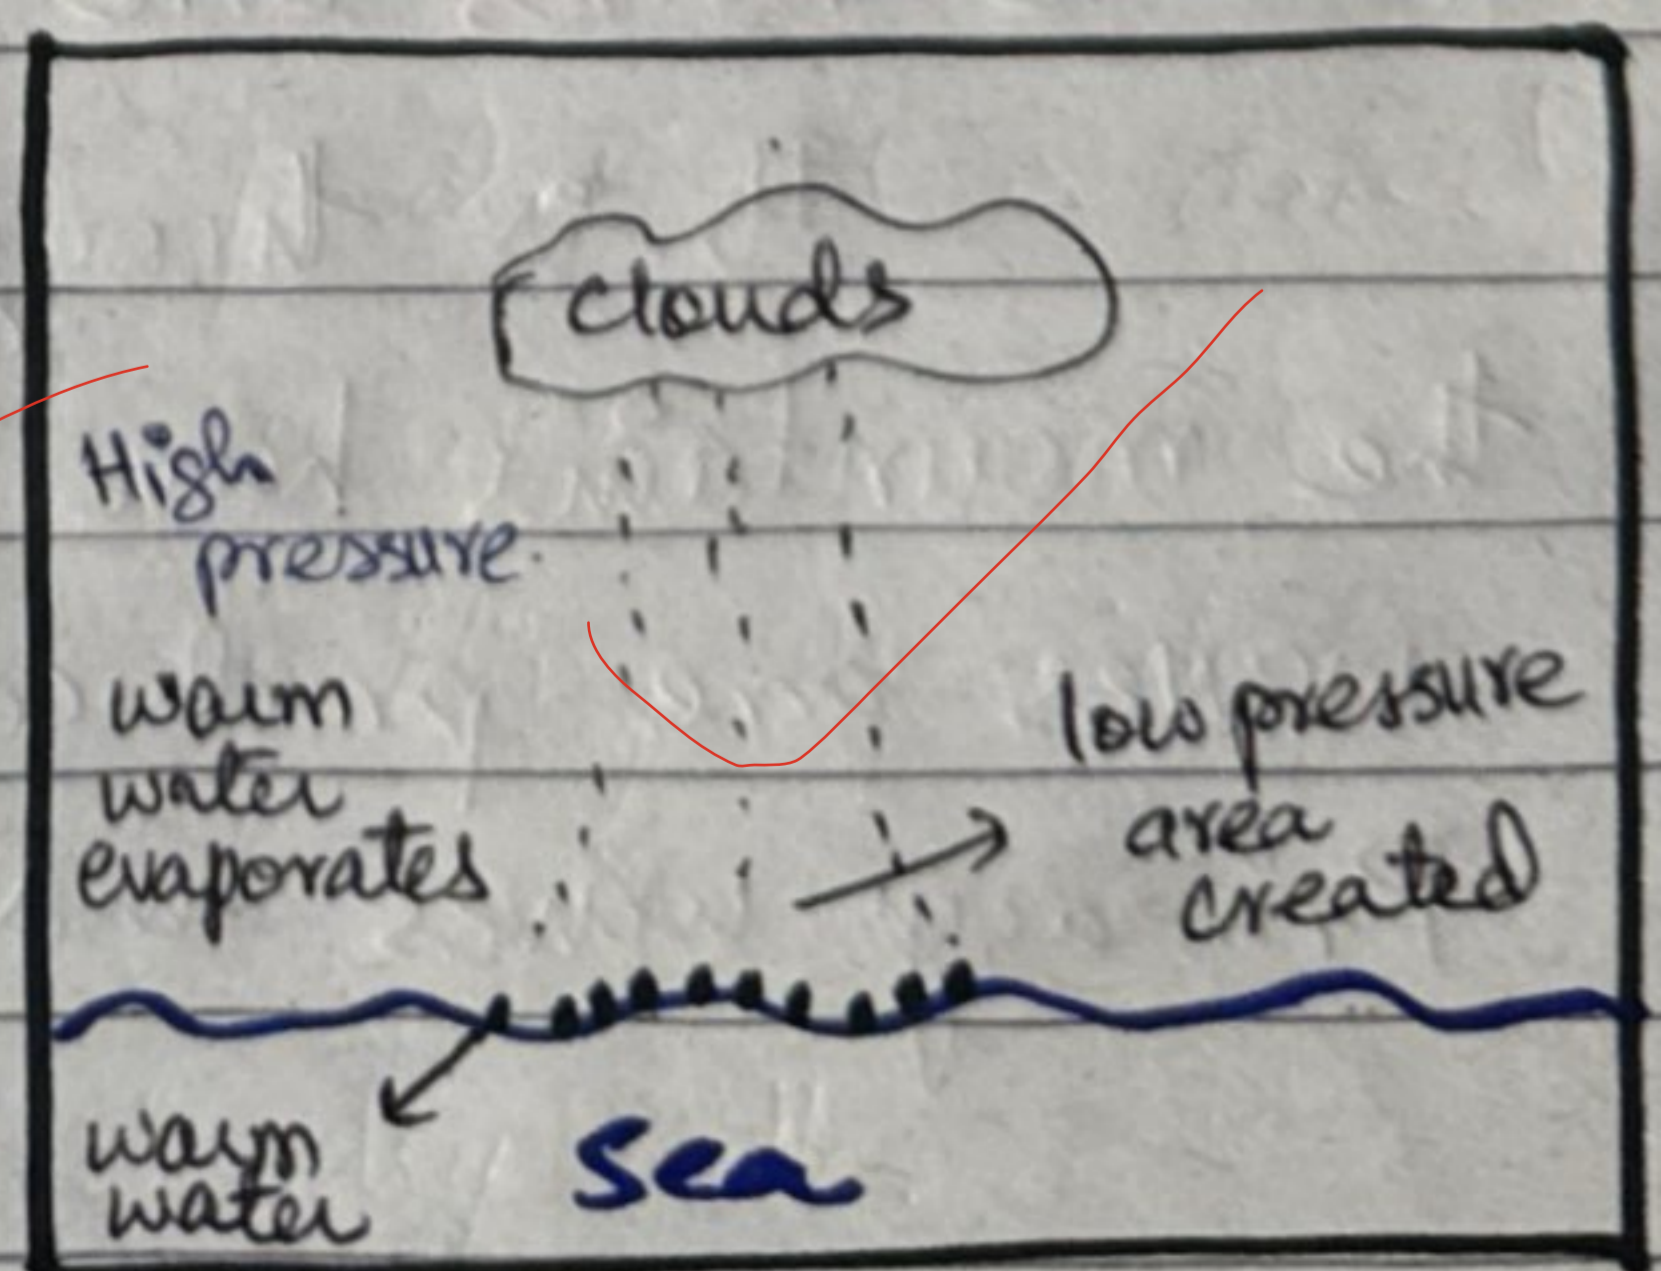 clouds
High
pressure
warm
water
evaporates
low pressure
area
created
warm
water
Sea